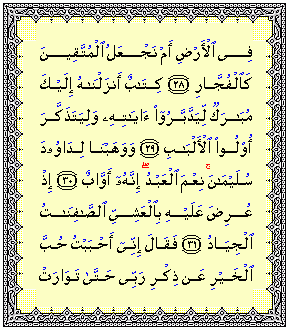 فِي ٱلْأَرْضِ أَمْ نَجْعَلُ ٱلْمُتَّقِينَ
كَٱلْفُجَّارِ ٢٨ كِتَٰبٌ أَنزَلْنَٰهُ إِلَيْكَ
مُبَٰرَكٌ لِّيَدَّبَّرُوٓا۟ ءَايَٰتِهِۦ وَلِيَتَذَكَّرَ
أُو۟لُوا۟ ٱلْأَلْبَٰبِ ٢٩ وَوَهَبْنَا لِدَاوُۥدَ
سُلَيْمَٰنَۚ نِعْمَ ٱلْعَبْدُۖ إِنَّهُۥٓ أَوَّابٌ ٣٠ إِذْ
عُرِضَ عَلَيْهِ بِٱلْعَشِيِّ ٱلصَّٰفِنَٰتُ
ٱلْجِيَادُ ٣١ فَقَالَ إِنِّيٓ أَحْبَبْتُ حُبَّ
ٱلْخَيْرِ عَن ذِكْرِ رَبِّي حَتَّىٰ تَوَارَتْ